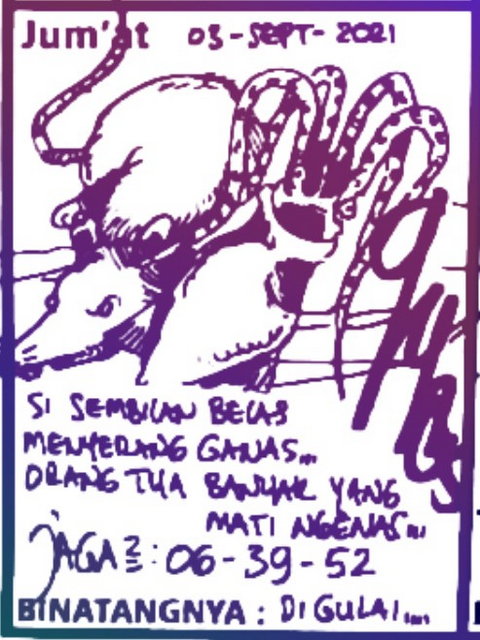 Jum'at 03-SEPT-2021
SI SEMBILAN BELAS
MENYERANG GANAS...
ORANG TUA BANYAK YANG
MATI NGENAS...
JAGA2 : 06-39-52
BINATANGNYA : DI GULAI....